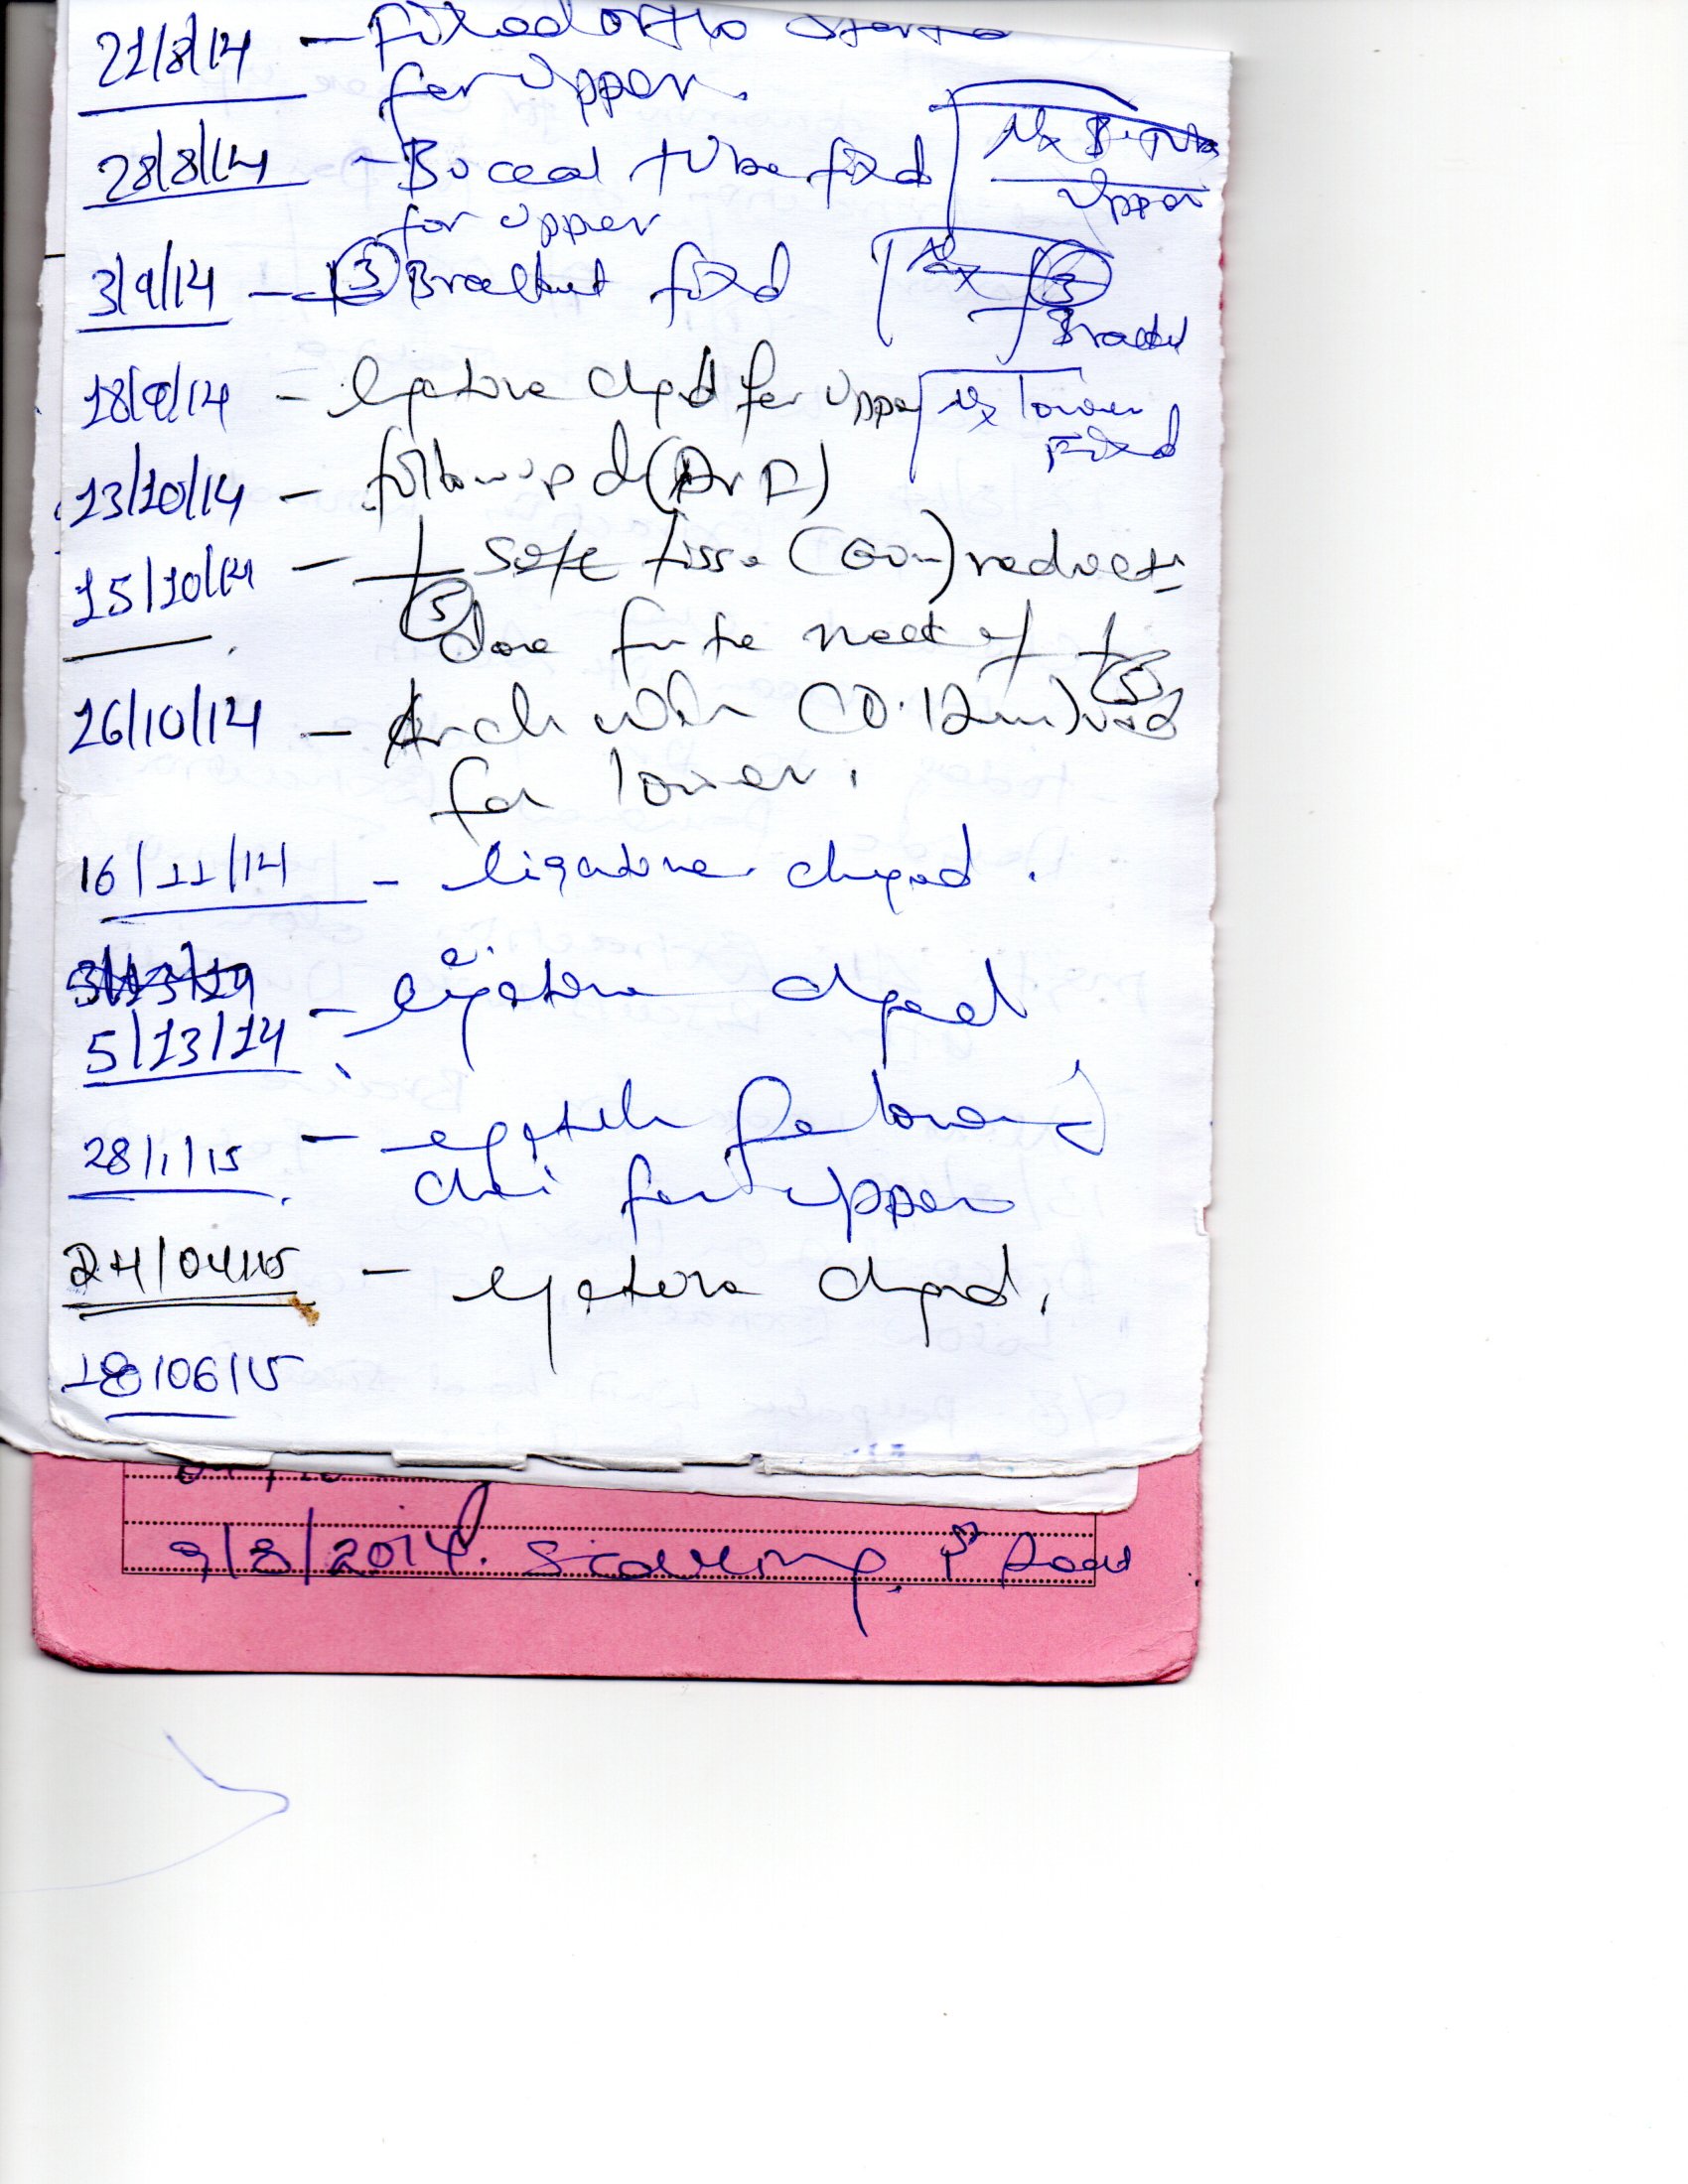 21/8/14 - Fixed ortho started
for upper.
28/8/14 - Buccal tube fixd
Nx B. Tube
Upper
for upper
3/9/14 - 3 Bracket fixd
Nx 3
Bracket
18/9/14 - ligature chgd for upper
Nx lower
Fixd
13/10/14 - followup d
15/10/14 - 5 Soft tissue (Gum) reduct
done for the neck of 5
26/10/14 - Arch (0.12mm) used
for lower.
16/11/14 - ligature chged.
5/13/14 - ligature chged
28/1/15 - for lower
for upper
24/04/15 - ligature chgd.
18/06/15
9/8/2014. Scalling.